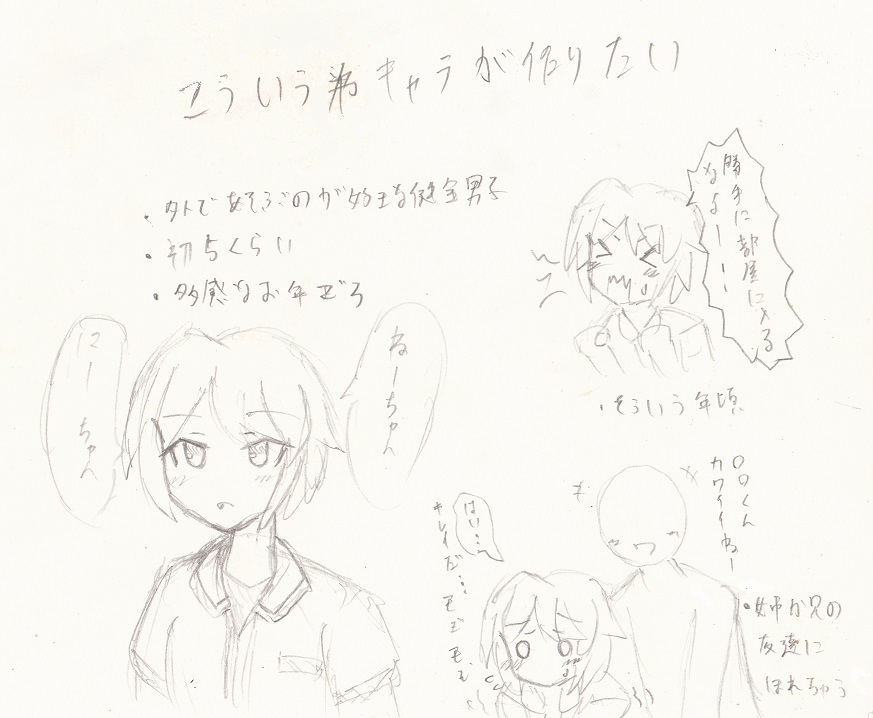 こういう弟キャラが作りたい
・外であそぶのが好きな健全男子
・初ちくらい
・多感なお年ごろ
勝手に部屋に入る
なよーー!!
・そういう年頃
ねーちゃん
にーちゃん
〇〇くん
カワイイねー
はい…
キレイだ…モジモジ
・姉か兄の
友達に
ほれちゃう